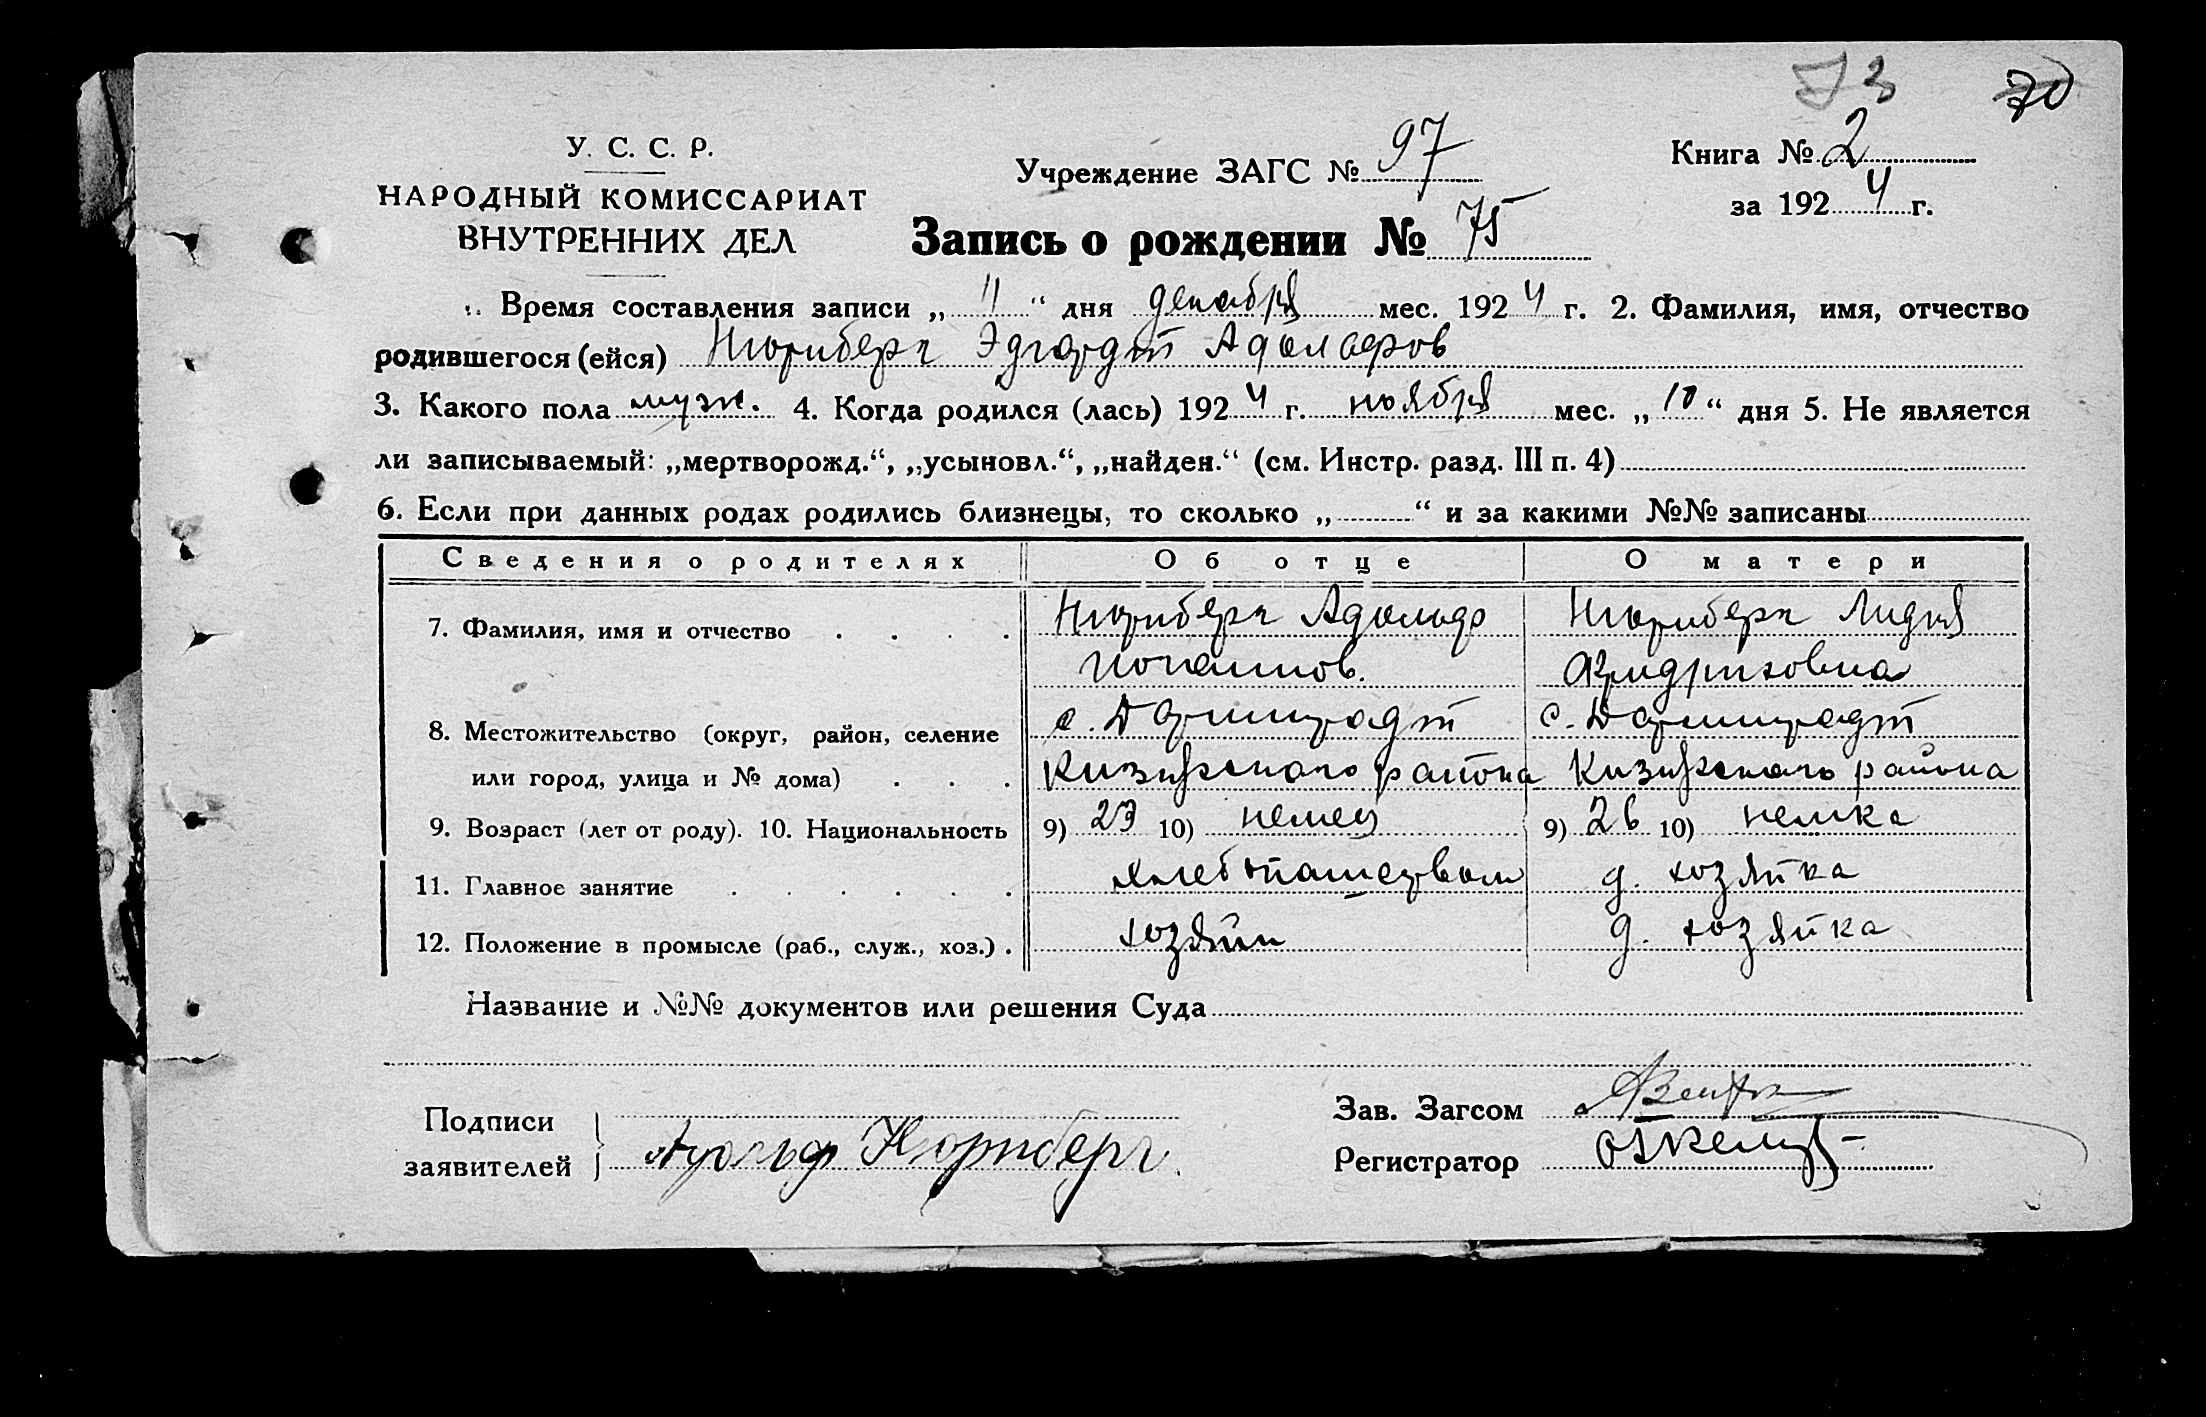 73 70
У. С. С. Р.
НАРОДНЫЙ КОМИССАРИАТ
ВНУТРЕННИХ ДЕЛ
Учреждение ЗАГС № 97
Книга № 2
за 1924 г.
Запись о рождении № 75
Время составления записи „11“ дня декабря мес. 1924 г. 2. Фамилия, имя, отчество
родившегося (ейся) Нюрнберг Эдгардт Адольфов
3. Какого пола муж. 4. Когда родился (лась) 1924 г. ноября мес. „10“ дня 5. Не является
ли записываемый: „мертворожд.“, „усыновл.“, „найден.“ (см. Инстр. разд. III п. 4)
6. Если при данных родах родились близнецы, то сколько „ “ и за какими №№ записаны
Сведения о родителях Об отце О матери
7. Фамилия, имя и отчество Нюрнберг Адольф Нюрнберг Лидия
8. Местожительство (округ, район, селение с. Дармштадт с. Дармштадт
или город, улица и № дома) района района
9. Возраст (лет от роду). 10. Национальность 9) 23 10) немец 9) 26 10) немка
11. Главное занятие д. хозяйка
12. Положение в промысле (раб., служ., хоз.) хозяин д. хозяйка
Название и №№ документов или решения Суда
Подписи
заявителей Адольф Нюрнберг.
Зав. Загсом
Регистратор